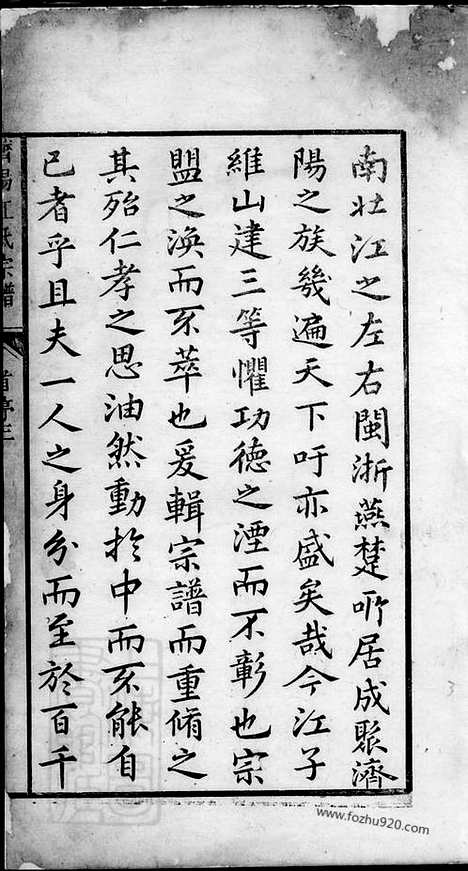 南壯江之左右閩浙燕楚所居成聚濟
陽之族幾遍天下吁亦盛矣哉今江子
維山建三等懼功德之湮而不彰也宗
盟之渙而不萃也爰輯宗譜而重脩之
其殆仁孝之思油然動於中而不能自
已者乎且夫一人之身分而至於百千
濟陽江氏宗譜
首序三
www.fozhu920.com